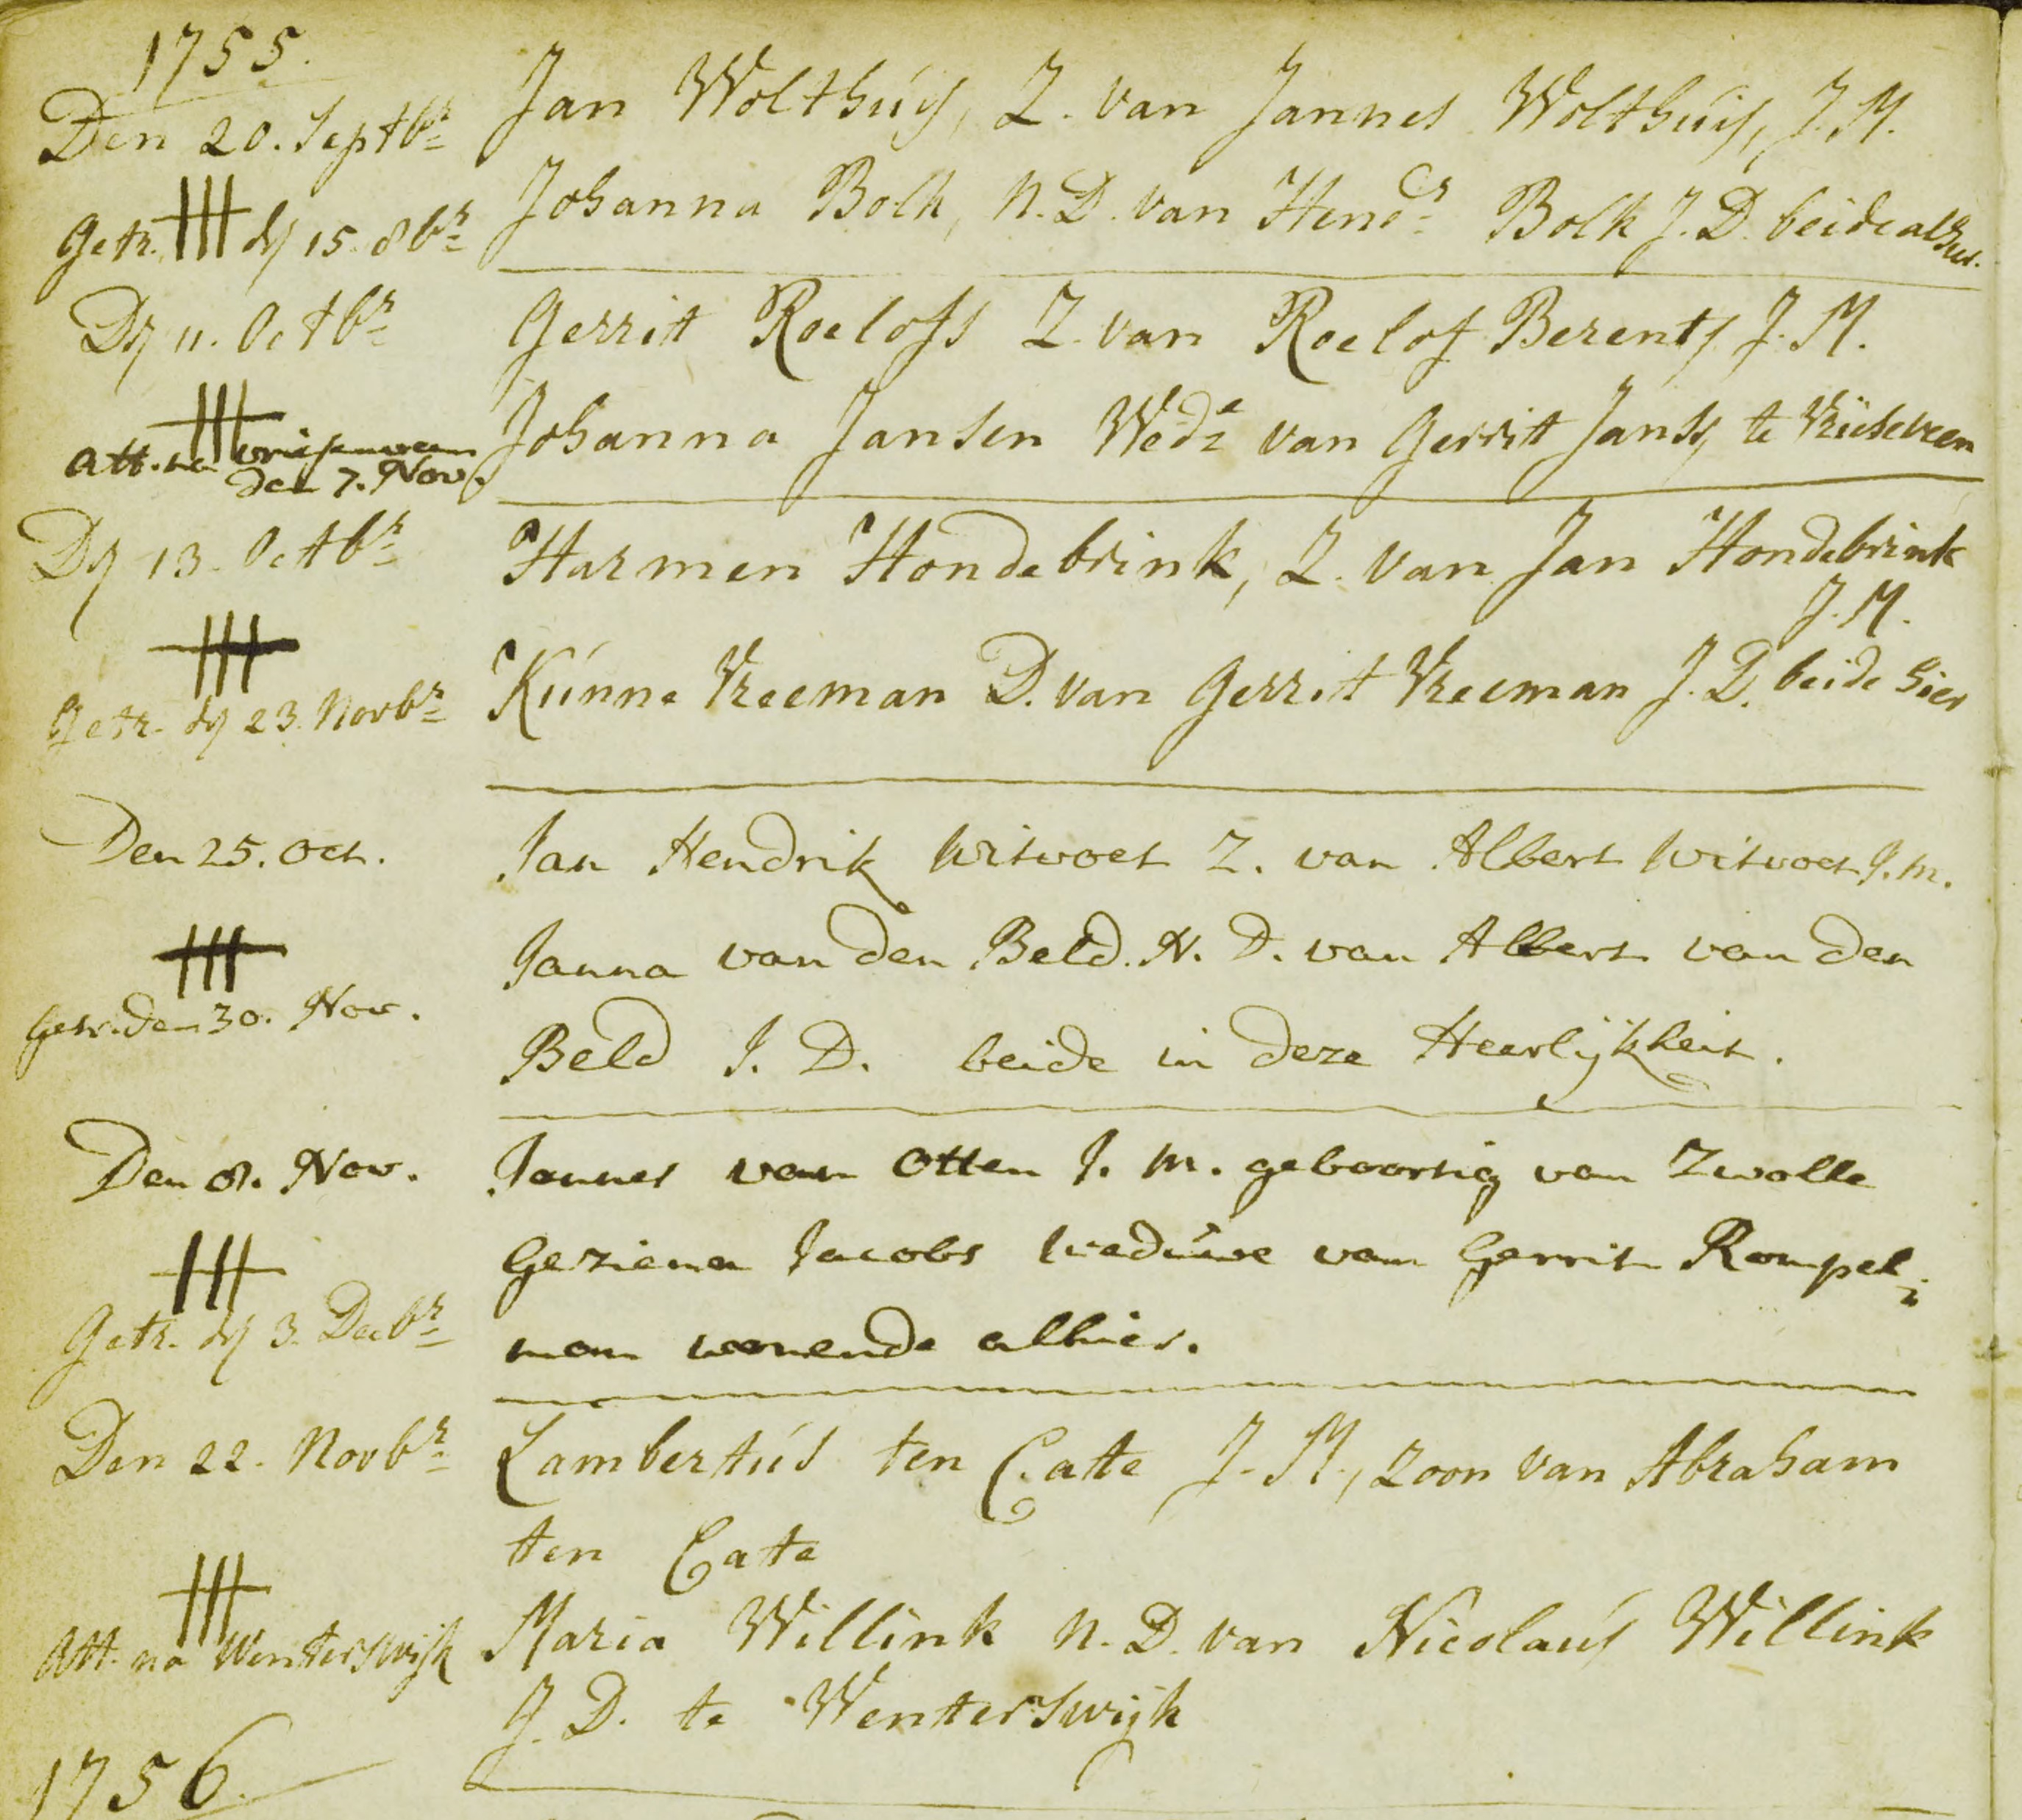 1755.
Den 20. Septbr
Jan Wolthuijs, Z. van Jannes Wolthuijs, J. M.
Getr. dij 15. 8br
Johanna Bolk, N. D. van Hendr Bolk J. D. beide alhier.
Dij 11. Octbr
Gerrit Roelofs Z. van Roelof Berents J. M.
Att. na vriesenveen
den 7. Nov.
Johanna Jansen Wede van Gerrit Jansz te Vrieseveen
Dij 13. Octbr
Harmen Hondebrink, Z. van Jan Hondebrink
J. M.
Getr. dij 23. Novbr
Kúnne Vreeman D. van Gerrit Vreeman J. D. beide hier
Den 25. Oct.
Jan Hendrik Witvoet Z. van Albert Witvoet J. m.
Getr. den 30. Nov.
Janna van den Beld. N. D. van Albert van den
Beld J. D. beide in deze Heerlijkheit.
Den 8. Nov.
Jannes van Otten J. m. geboortig van Zwolle
Geziena Jacobs Wedúwe van Gerrit Rompel,,
man wonende alhier.
Getr. dij 3. Decbr
Den 22. Novbr
Lambertús ten Cate J. M., zoon van Abraham
ten Cate
Att. na Wenterswijk
Maria Willink N. D. van Nicolaús Willink
J. D. te Wenterswijk
1756.